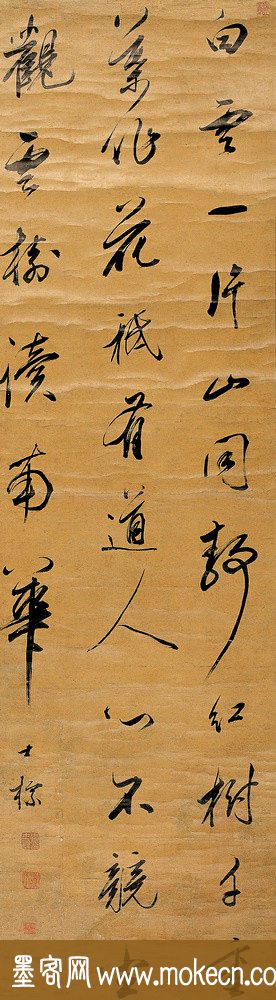 白雲一片山同靜紅樹千重
葉作花祇有道人心不競
觀雲樹讀南華
士標
墨客网 www.mokecn.c